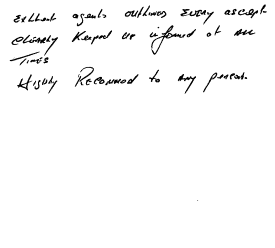 Exllent agents outlines every accept.
clearly Keeped us informed at all
Times
Highly Recommed to any person.